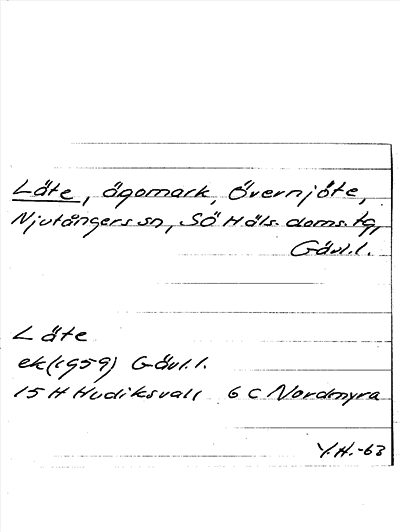 Läte, ägomark, Övernjöte,
Njutångers sn, SÖ Häls. doms. tg,
Gävl. l.
Läte
ek (1959) Gävl. l.
15 H Hudiksvall 6 c Nordmyra
Y.H.-63